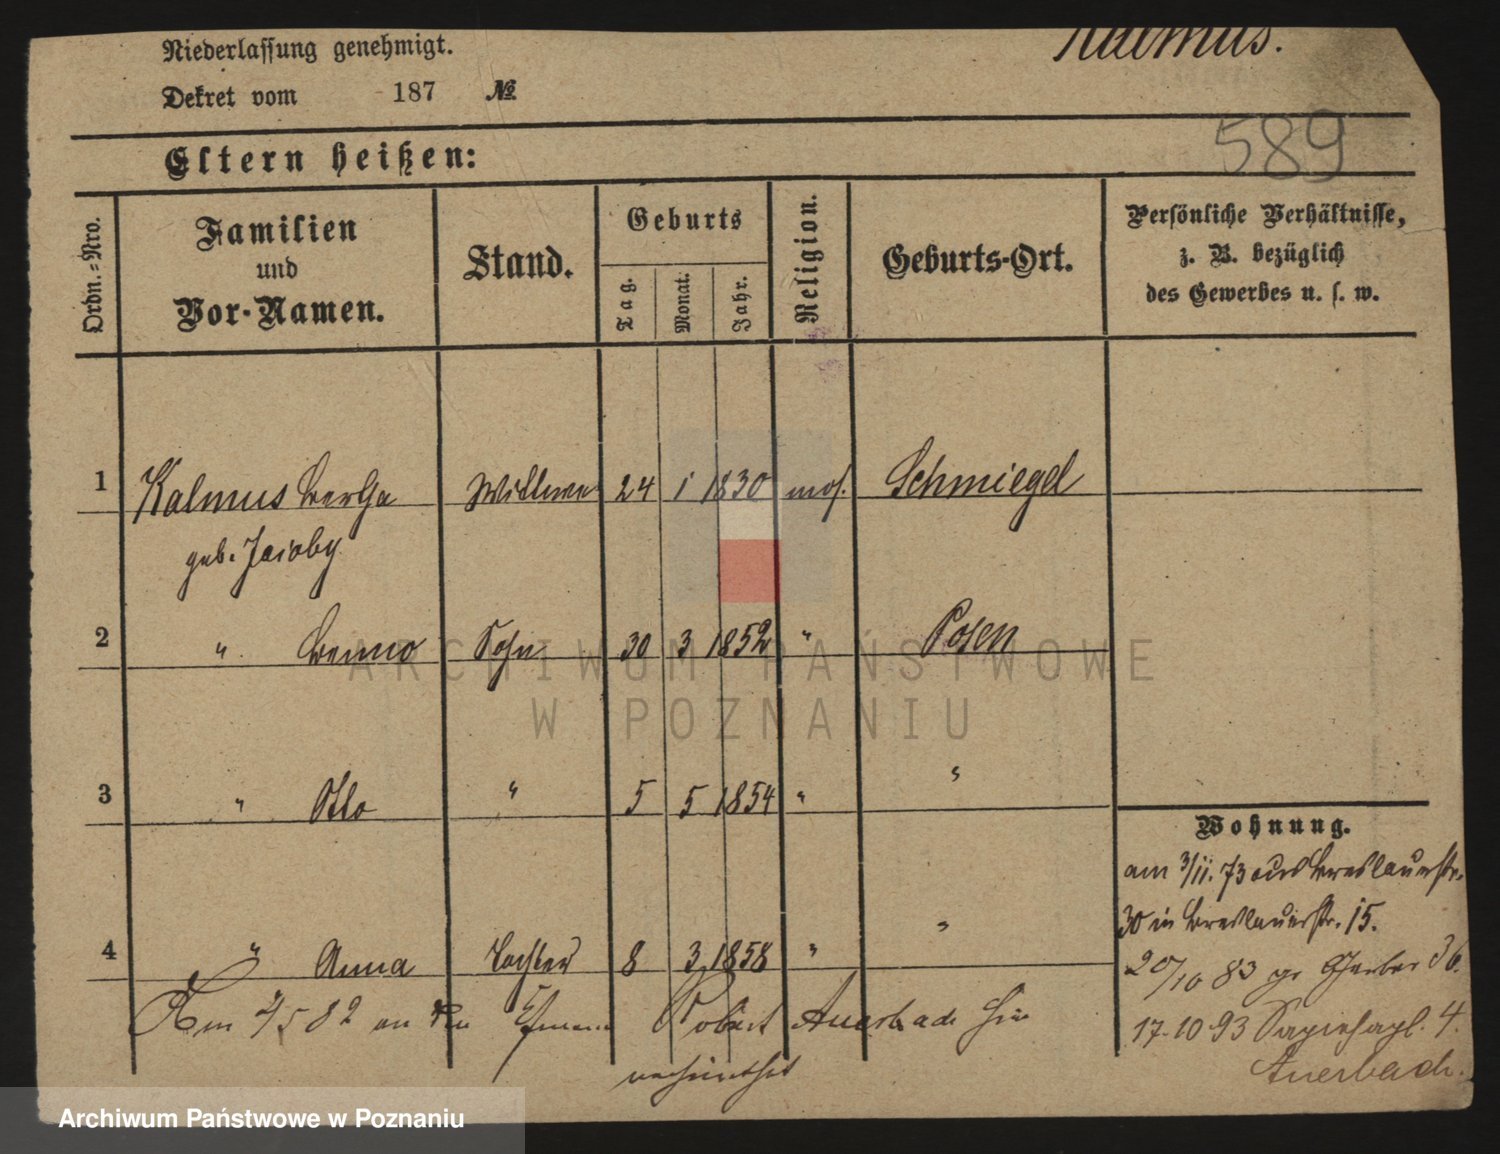 Niederlassung genehmigt.
Kalmus.
Dekret vom 187 №
589
Eltern heißen:
Ordn.=Nro.
Familien
und
Vor-Namen.
Stand.
Geburts
Tag.
Monat.
Jahr.
Religion.
Geburts-Ort.
Persönliche Verhältnisse,
z. B. bezüglich
des Gewerbes u. s. w.
1 Kalmus Bertha Wittwe 24 1 1830 mos. Schmiegel
geb. Jacoby
2 " Benno Sohn 30 3 1852 " Posen
3 " Otto " 5 5 1854 " "
4 " Anna Tochter 8 3 1858 " "
Am 4/5 82 an den Robert Auerbach hier
verheirathet
Wohnung.
am 3/11. 73 aus Breslauerstr.
30 in Breslauerstr. 15.
20/10 83 gr Gerber 36.
17-10-93 Sapiehapl. 4.
Auerbach.
ARCHIWUM PAŃSTWOWE
W POZNANIU
Archiwum Państwowe w Poznaniu